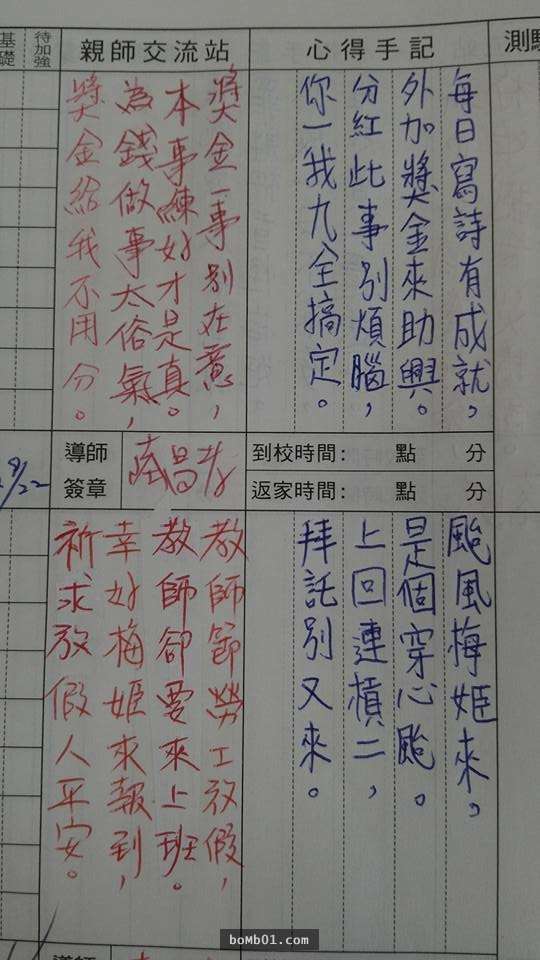 測驗
心得手記
每日寫詩有成就。
外加獎金來助興。
分紅此事別煩腦，
你一我九全搞定。
親師交流站
獎金一事別在意，
本事練好才是真。
為錢做事太俗氣，
獎金給我不用分。
待加強
基礎
到校時間：　點　分
返家時間：　點　分
導師
簽章
9/22
颱風梅姬來。
是個穿心颱。
上回連槓二，
拜託別又來。
教師節勞工放假，
教師卻要來上班。
幸好梅姬來報到，
祈求放假人平安。
導師
boMb01.com